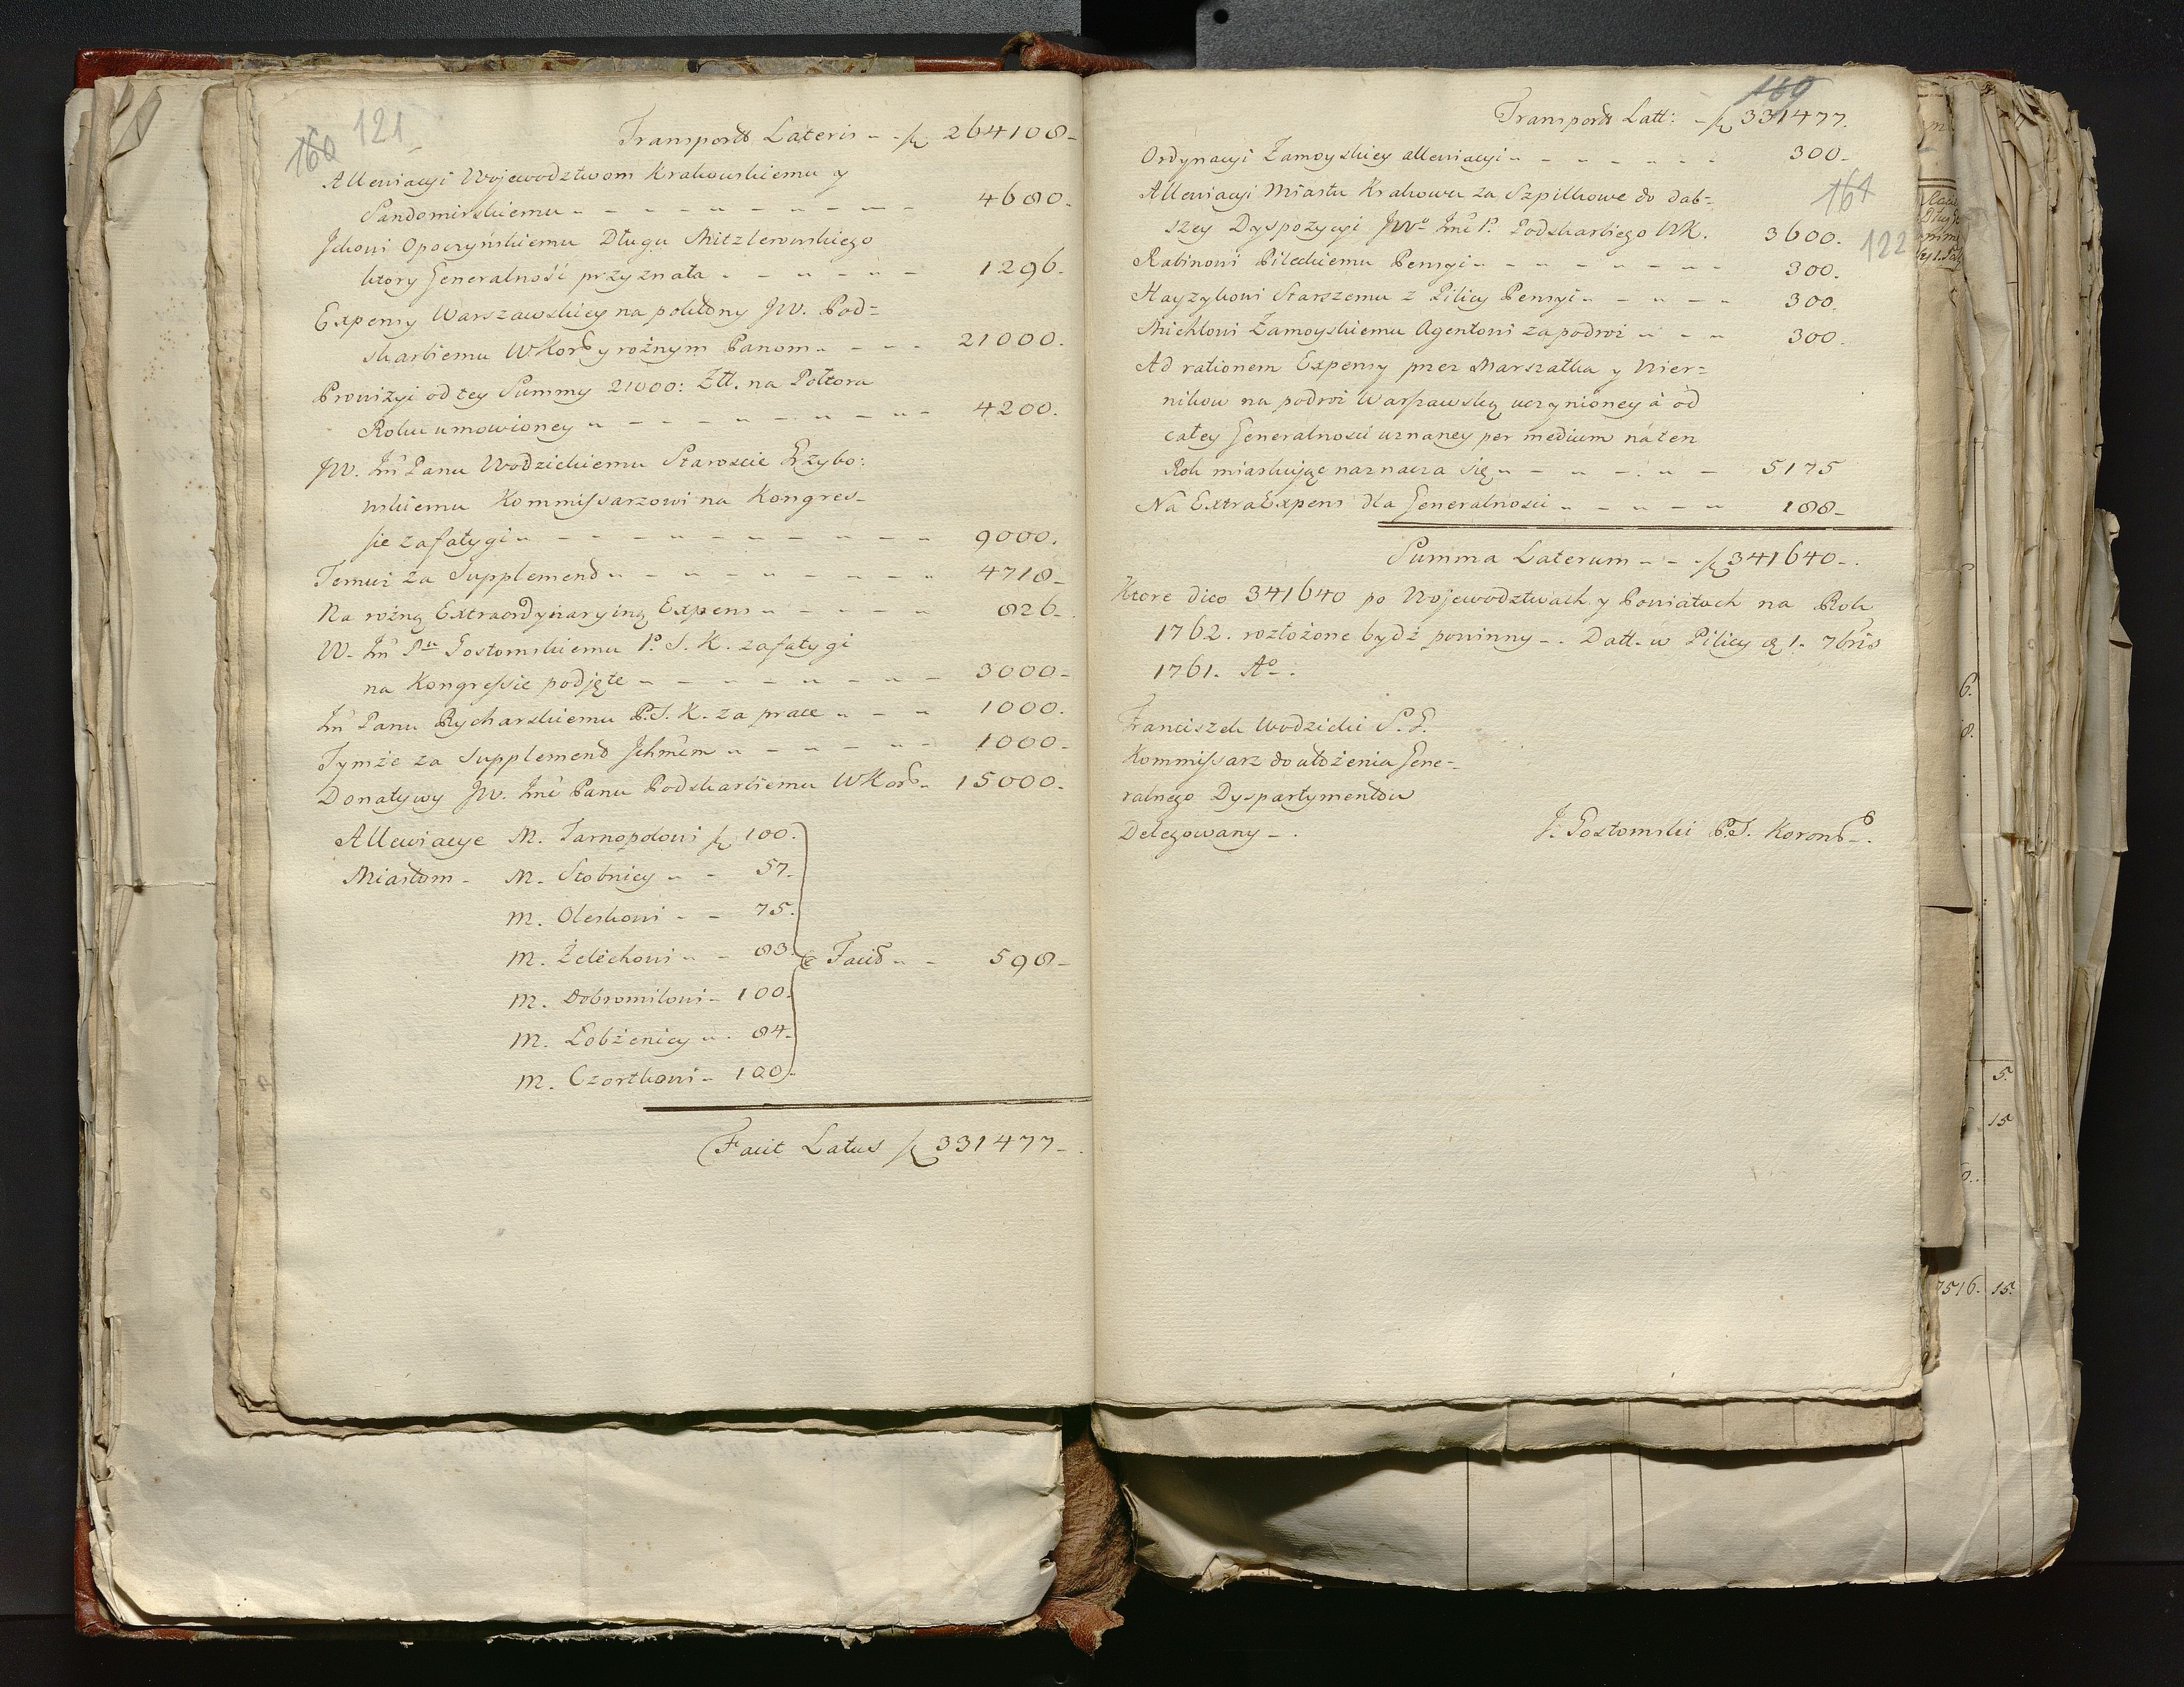 160 121
Transport Lateris - - fl 264108 -
Allewiacyi Wojewodztwom Krakowskiemu y
Sandomirskiemu - - - - - - - - - 4680.
Jckowi Opoczyńskiemu Długu Mitzlerowskiego
ktory Generalność przyznała - - - - - - 1296.
Expensy Warszawskiey na pokłony JW. Pod=
skarbiemu WKor y rożnym Panom - - - - 21000.
Prowizyi od tey Summy 21000: Złł. na Połtora
Roku umowioney - - - - - - - - - 4200.
JW. Jmć Panu Wodzickiemu Staroście Grzybo:
wskiemu Kommissarzowi na Kongres-
sie za fatygi - - - - - - - - - - 9000.
Temuż za Supplement - - - - - - - - 4718 -
Na rożną Extraordynaryiną Expens - - - - - 826 -
W. Jmć Pu Gostomskiemu P. S. K. za fatygi
na Kongressie podjęte - - - - - - - 3000 -
Jmć Panu Rycharskiemu P. S. K. za prace - - - 1000.
Tymże za Supplement Ichmćm - - - - - - 1000 -
Donatywy JW. Jmć Panu Podskarbiemu WKor - 15000.
Allewiacye M. Tarnopolowi fl 100.
Miastom - M. Stobnicy - - 57.
M. Oleskowi - - 75.
M. Żelechowi - - 83 - Facit - - 598 -
M. Dobromilowi - 100.
M. Łobżenicy - - 84 -
M. Czortkowi - 100 -
Facit Latus fl 331477 -
160
Transport Latt: - fl 331477.
Ordynacyi Zamoyskiey allewiacyi - - - - - - - 300 -
161
Allewiacyi Miastu Krakowu za Szpilkowe do dal=
szey Dyspozycyi JWo Jmć P. Podskarbiego WK. 3600.
122
Rabinowi Pileckiemu Pensyi - - - - - - - 300.
Hayzykowi Starszemu z Pilicy Pensyi - - - - 300.
Michlowi Zamoyskiemu Agentowi za podroż - - - 300.
Ad rationem Expensy przez Marszałka y Wier=
nikow na podroż Warszawską uczynioney à od
całey Generalności uznaney per medium na ten
Rok miarkując naznacza się - - - - - - 5175
Na Extra Expens dla Generalności - - - - - 188 -
Summa Laterum - - fl 341640 -.
Ktore dico 341640 po Wojewodztwach y Powiatach na Rok
1762. rozłożone bydź powinny -. Datt. w Pilicy d. 1. 7bris
1761. Ao:
Franciszek Wodzicki S. G.
Kommissarz do ułożenia Gene-
ralnego Dyspartymentu
Delegowany -.
J: Gostomski P. S. Koronny -.